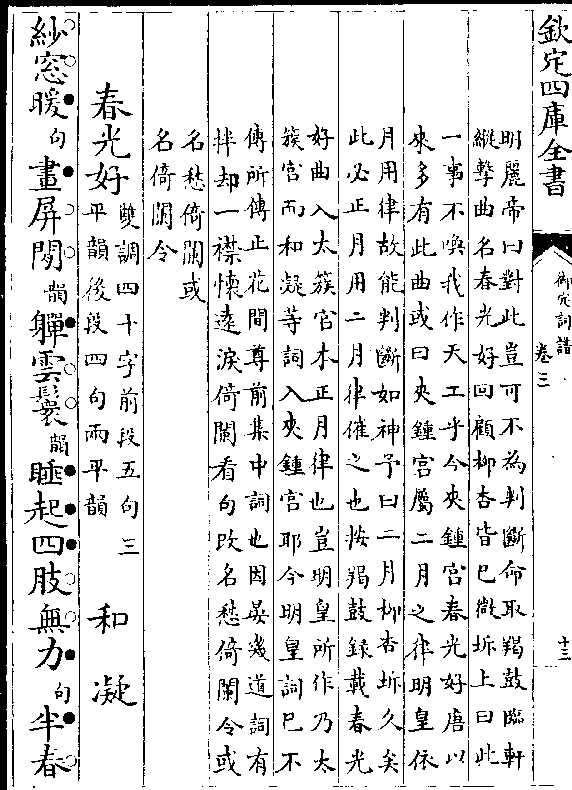 欽定四庫全書
御定詞譜
卷三
十三
明麗帝曰對此豈可不為判斷命取羯鼓臨軒
縱擊曲名春光好回顧柳杏皆已微坼上曰此
一事不喚我作天工乎今夾鍾宮春光好唐以
來多有此曲或曰夾鍾宮屬二月之律明皇依
月用律故能判斷如神予曰二月柳杏坼久矣
此必正月用二月律催之也按羯鼓録載春光
好曲入太簇宮本正月律也豈明皇所作乃太
簇宮而和凝等詞入夾鍾宮耶今明皇詞已不
傳所傳止花間尊前集中詞也因晏幾道詞有
拌却一襟懷遠淚倚闌看句改名愁倚闌令或
名愁倚闌或
名倚闌令
春光好
雙調四十字前段五句三
平韻後段四句兩平韻
和凝
紗窓暖句畫屏閒韻軃雲鬟韻睡起四肢無力句半春